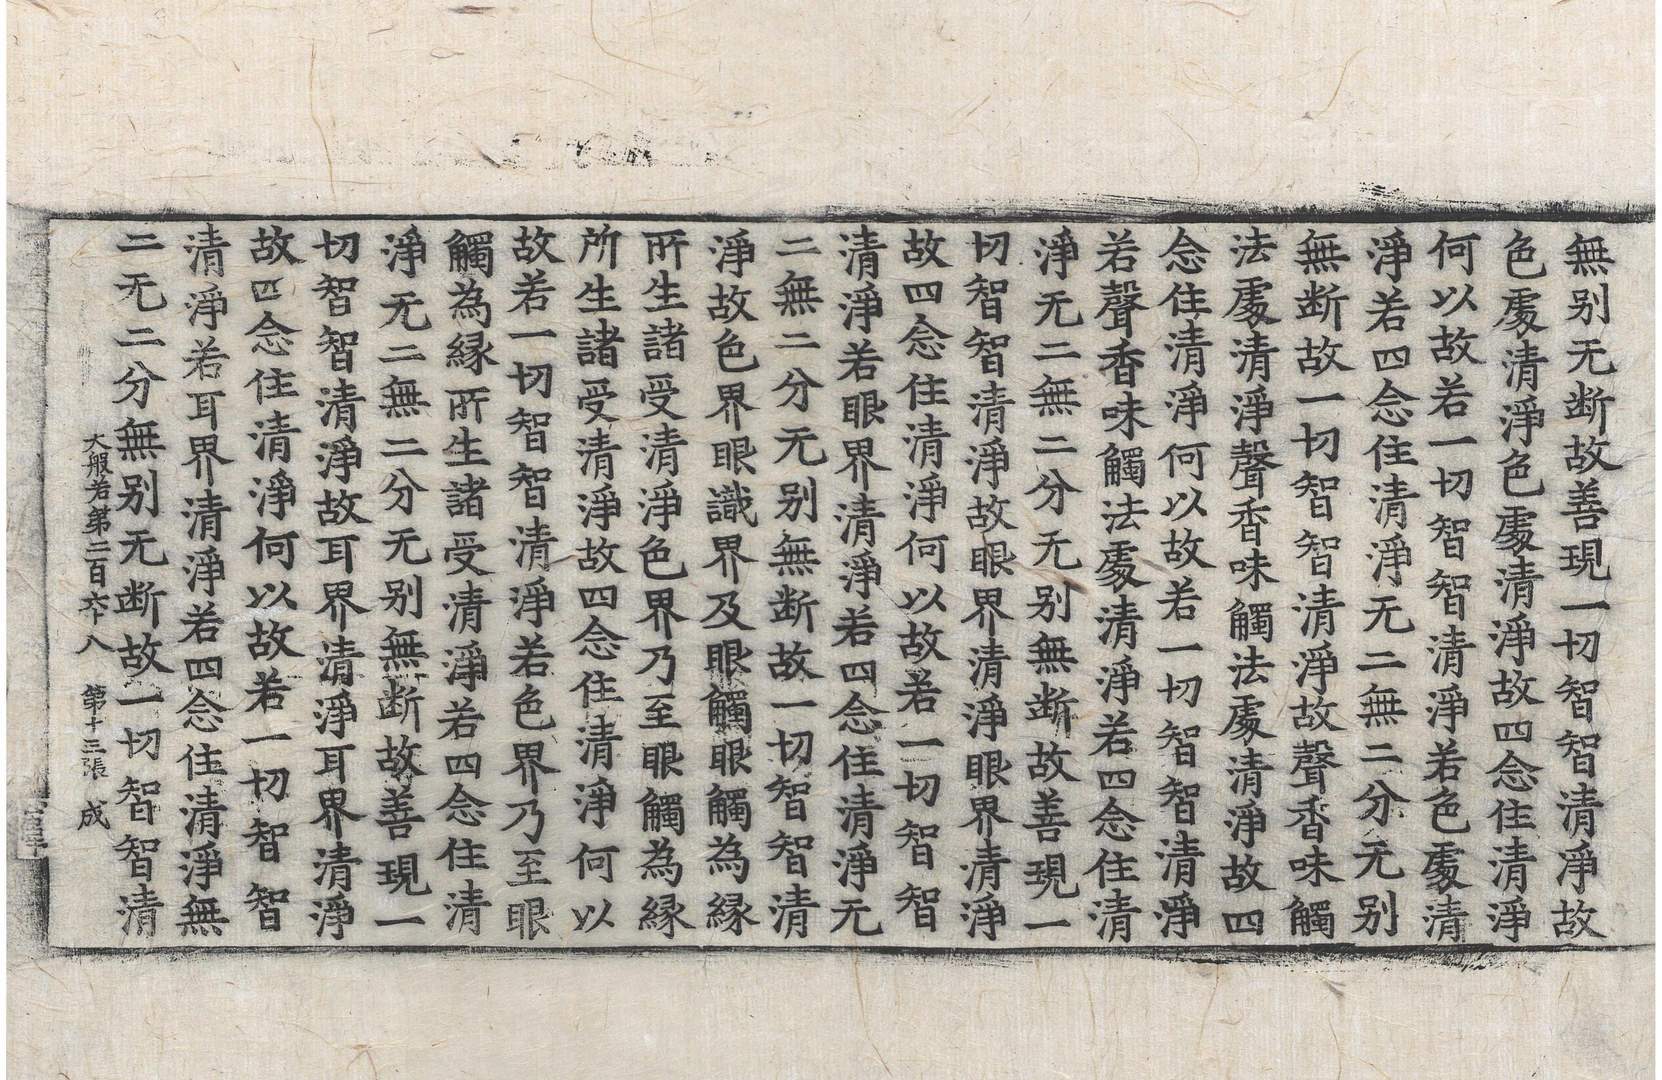 無别无断故善現一切智智清淨故
色處清淨色處清淨故四念住清淨
何以故若一切智智清淨若色處清
淨若四念住清淨无二無二分无别
無断故一切智智清淨故聲香味觸
法處清淨聲香味觸法處清淨故四
念住清淨何以故若一切智智清淨
若聲香味觸法處清淨若四念住清
淨无二無二分无别無断故善現一
切智智清淨故眼界清淨眼界清淨
故四念住清淨何以故若一切智智
清淨若眼界清淨若四念住清淨无
二無二分无别無断故一切智智清
淨故色界眼識界及眼觸眼觸為縁
所生諸受清淨色界乃至眼觸為縁
所生諸受清淨故四念住清淨何以
故若一切智智清淨若色界乃至眼
觸為縁所生諸受清淨若四念住清
淨无二無二分无别無断故善現一
切智智清淨故耳界清淨耳界清淨
故四念住清淨何以故若一切智智
清淨若耳界清淨若四念住清淨無
二无二分無别无断故一切智智清
大般若第二百六十八 第十三張 成